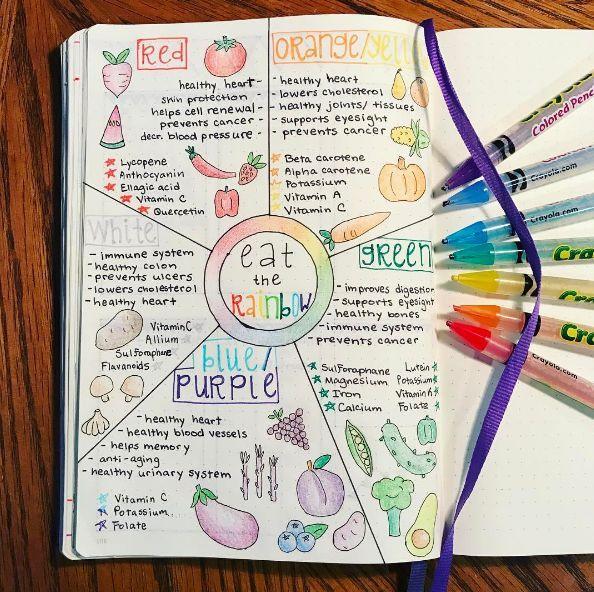 Red
healthy heart-
skin protection -
helps cell renewal-
prevents cancer -
decr. blood pressure -
Lycopene
Anthocyanin
Ellagic acid
Vitamin C
Quercetin
orange/yell
- healthy heart
- lowers cholesterol
- healthy joints/ tissues
- supports eyesight
- prevents cancer
Beta carotene
Alpha carotene
Potassium
Vitamin A
Vitamin C
White
- immune system
- healthy colon
- prevents ulcers
- lowers cholesterol
- healthy heart
Vitamin C
Allium
Sulforaphane
Flavanoids
eat
the
RAINBOW
green
- improves digestion
- supports eyesight
- healthy bones
- immune system
- prevents cancer
Sulforaphane Lutein
Magnesium Potassium
Iron Vitamin K
Calcium Folate
blue/
PURPLE
- healthy heart
- healthy blood vessels
- helps memory
- anti-aging
- healthy urinary system
Vitamin C
Potassium
Folate
Colored Penc
Crayola.com
Crayola.com
Cra
Cra
Cra
Cra
Crayola.com